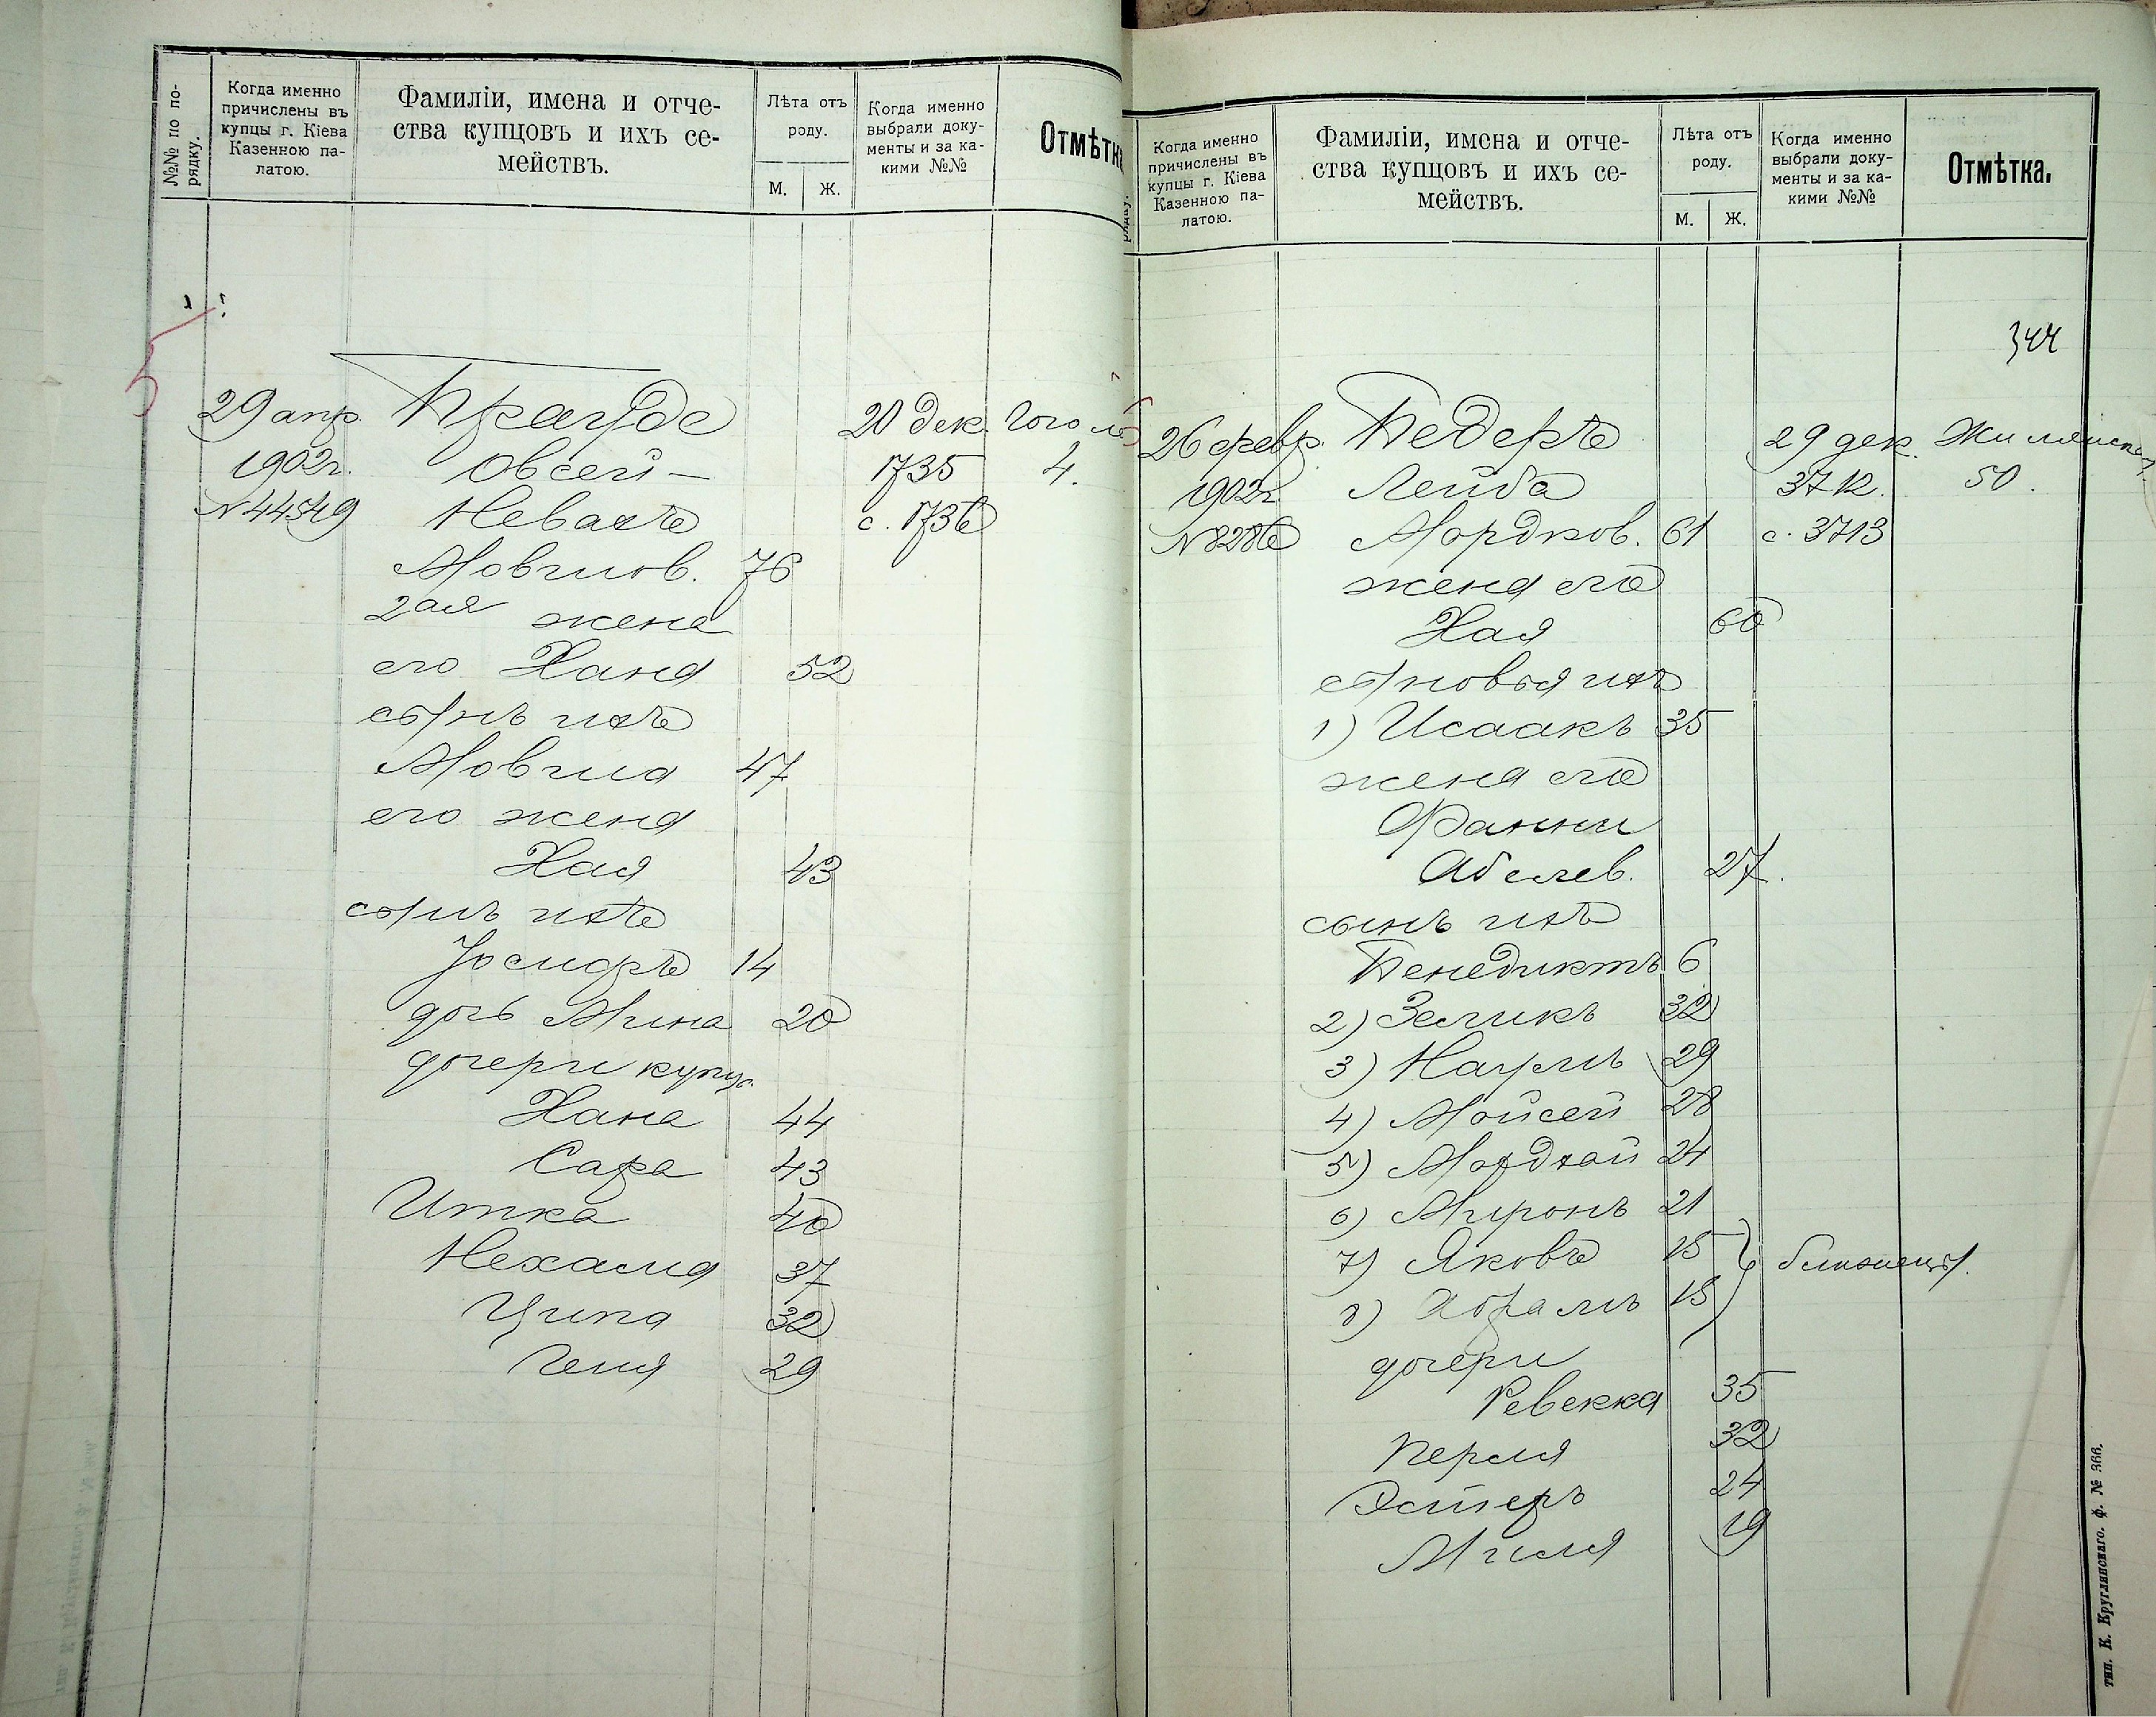 №№ по по-
рядку.
Когда именно
причислены въ
купцы г. Кіева
Казенною па-
латою.
Фамиліи, имена и отче-
ства купцовъ и ихъ се-
мействъ.
Лѣта отъ
роду.
М.
Ж.
Когда именно
выбрали доку-
менты и за ка-
кими №№
Отмѣтка
5
29 апр.
1902г.
№ 44549
Овсей-
Невахъ
Мовшов. 76
2ая жена
его Хана 52
сынъ ихъ
Мовша 47
его жена
Хая 43
сынъ ихъ
Іосифъ 14
дочь Мина 20
дочери купц.
Хана 44
Сара 43
Итка 40
Нехама 37
Ципа 32
Геня 29
20 дек.
1735
с. 1736
4.
Когда именно
причислены въ
купцы г. Кіева
Казенною па-
латою.
Фамиліи, имена и отче-
ства купцовъ и ихъ се-
мействъ.
Лѣта отъ
роду.
М.
Ж.
Когда именно
выбрали доку-
менты и за ка-
кими №№
Отмѣтка.
344
26 февр.
1902г.
№ 8286
Бедеръ
Лейба
Мордков. 61
жена его
Хая 60
сыновья ихъ
1) Исаакъ 35
жена его
Фанни
Абелев. 27.
сынъ ихъ
Бенедиктъ 6
2) Зеликъ 32
3) Наумъ 29
4) Мойсей 28
5) Мордхай 24
6) Миронъ 21
7) Яковъ 15
8) Абрамъ 15
близнецы.
дочери
Ревекка 35
Перля 32
Эстеръ 24
Миля 19
29 дек.
3712.
с. 3713
Жилянская
50.
тип. К. Круглянскаго. ф. № 366.